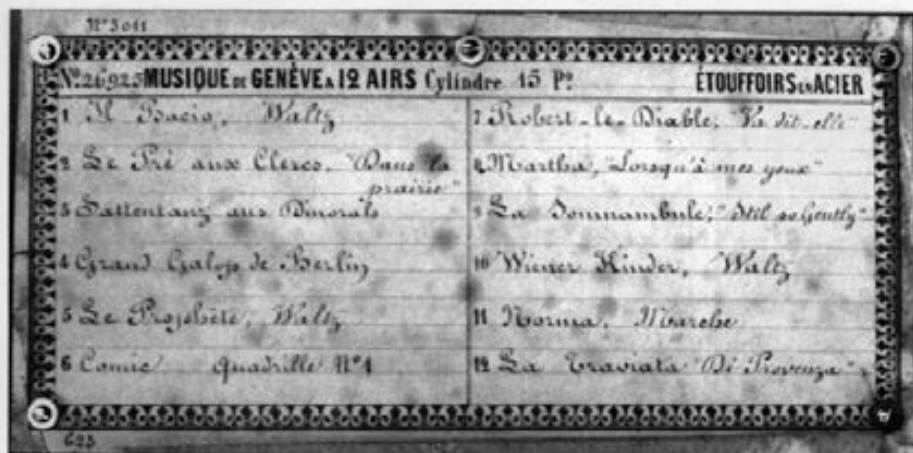 Nº 3011
Nº 26925 MUSIQUE DE GENÈVE A 12 AIRS Cylindre 15 Pº ÉTOUFFOIRS EN ACIER
1 Il Bacio, Waltz
2 Le Pré aux Clercs. "Dans la
prairie"
3 Sattentanz aus Dinorah
4 Grand Galop de Berlin
5 Le Prophète, Waltz
6 Comic Quadrille Nº 1
7 Robert-le-Diable, "Va dit-elle"
8 Martha, "Lorsqu'à mes yeux"
9 La Somnambule, "Stil so Gently"
10 Wiener Kinder, Waltz
11 Norma, Marche
12 La Traviata "Di Provenza"
623